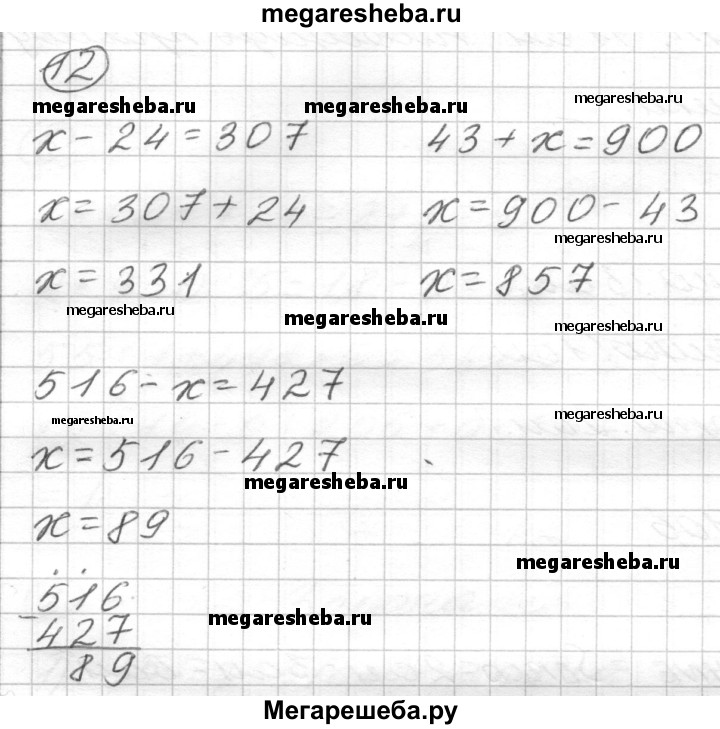 megaresheba.ru
12
megaresheba.ru megaresheba.ru megaresheba.ru
x - 24 = 307 43 + x = 900
x = 307 + 24 x = 900 - 43
megaresheba.ru
x = 331 x = 857
megaresheba.ru megaresheba.ru megaresheba.ru
516 - x = 427
megaresheba.ru megaresheba.ru
x = 516 - 427
megaresheba.ru
x = 89
megaresheba.ru
516
megaresheba.ru
- 427
89
Мегарешеба.ру